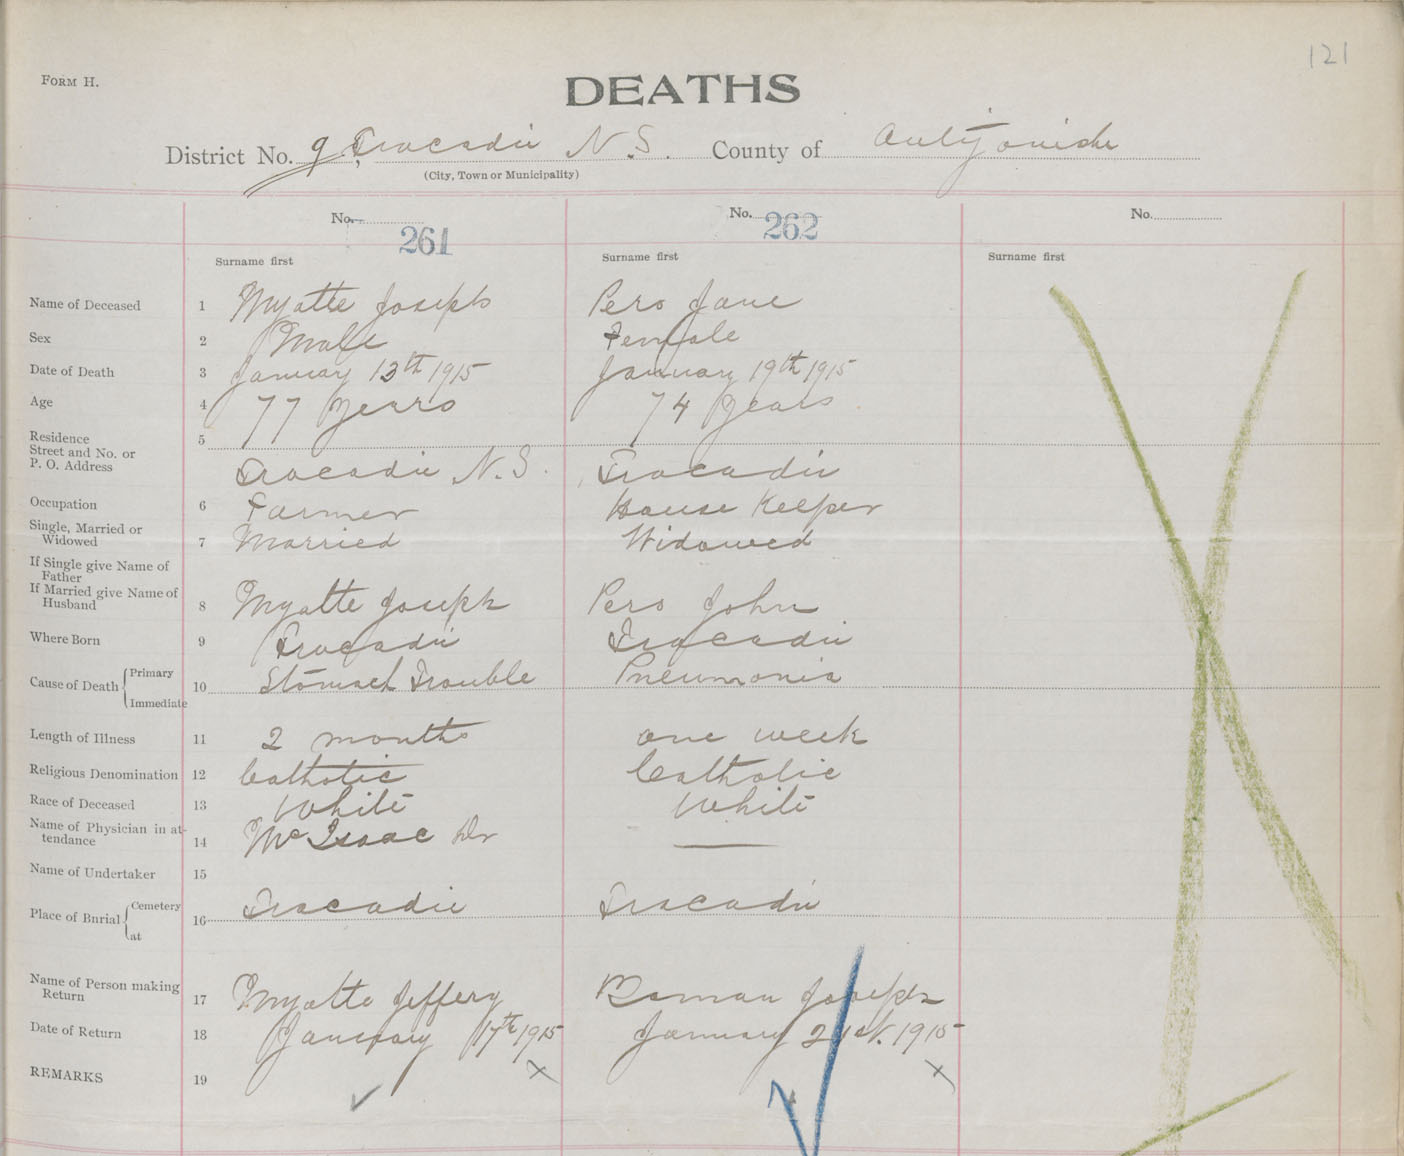 121
FORM H.
DEATHS
District No. 9 Tracadie N.S. County of Antigonishe
(City, Town or Municipality)
No. 261 No. 262 No.
Surname first Surname first Surname first
Name of Deceased 1 Myatte Joseph Pero Jane
Sex 2 Male Female
Date of Death 3 January 13th 1915 January 19th 1915
Age 4 77 years 74 years
Residence Street and No. or P. O. Address 5 Tracadie N.S. Tracadie
Occupation 6 Farmer House Keeper
Single, Married or Widowed 7 Married Widowed
If Single give Name of Father
If Married give Name of Husband 8 Myatte Joseph Pero John
Where Born 9 Tracadie Tracadie
Cause of Death Primary Immediate 10 Stomach Trouble Pneumonia
Length of Illness 11 2 months one week
Religious Denomination 12 Catholic Catholic
Race of Deceased 13 White White
Name of Physician in attendance 14 McIsaac Dr
Name of Undertaker 15
Place of Burial Cemetery at 16 Tracadie Tracadie
Name of Person making Return 17 Myatte Jeffery Benoit Joseph
Date of Return 18 January 17th 1915 January 21st. 1915
REMARKS 19